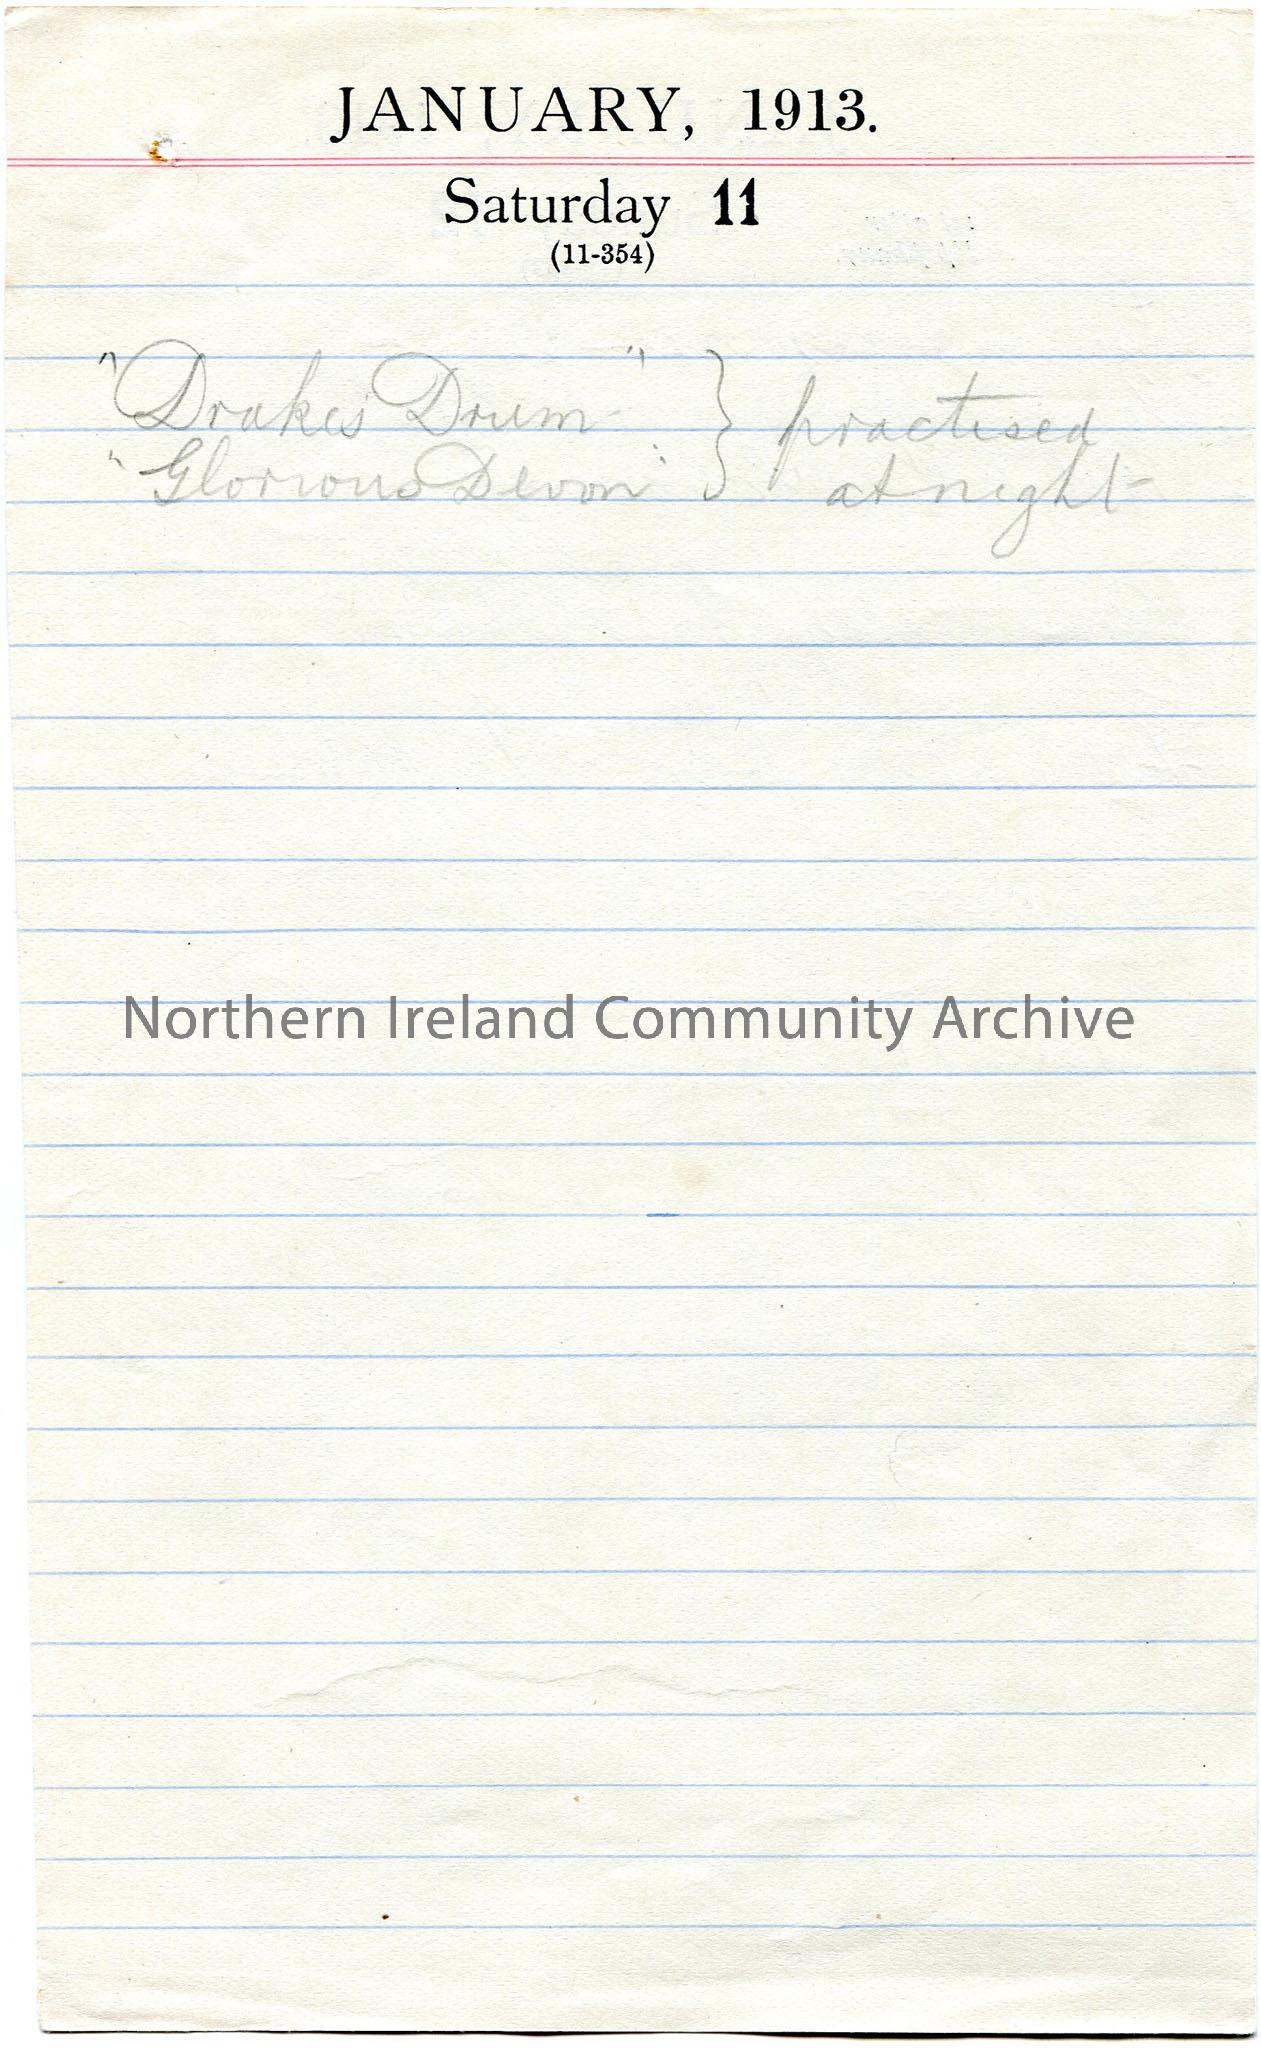 JANUARY, 1913.
Saturday 11
(11-354)
"Drakes Drum" } practised
"Glorious Devon" } at night
Northern Ireland Community Archive